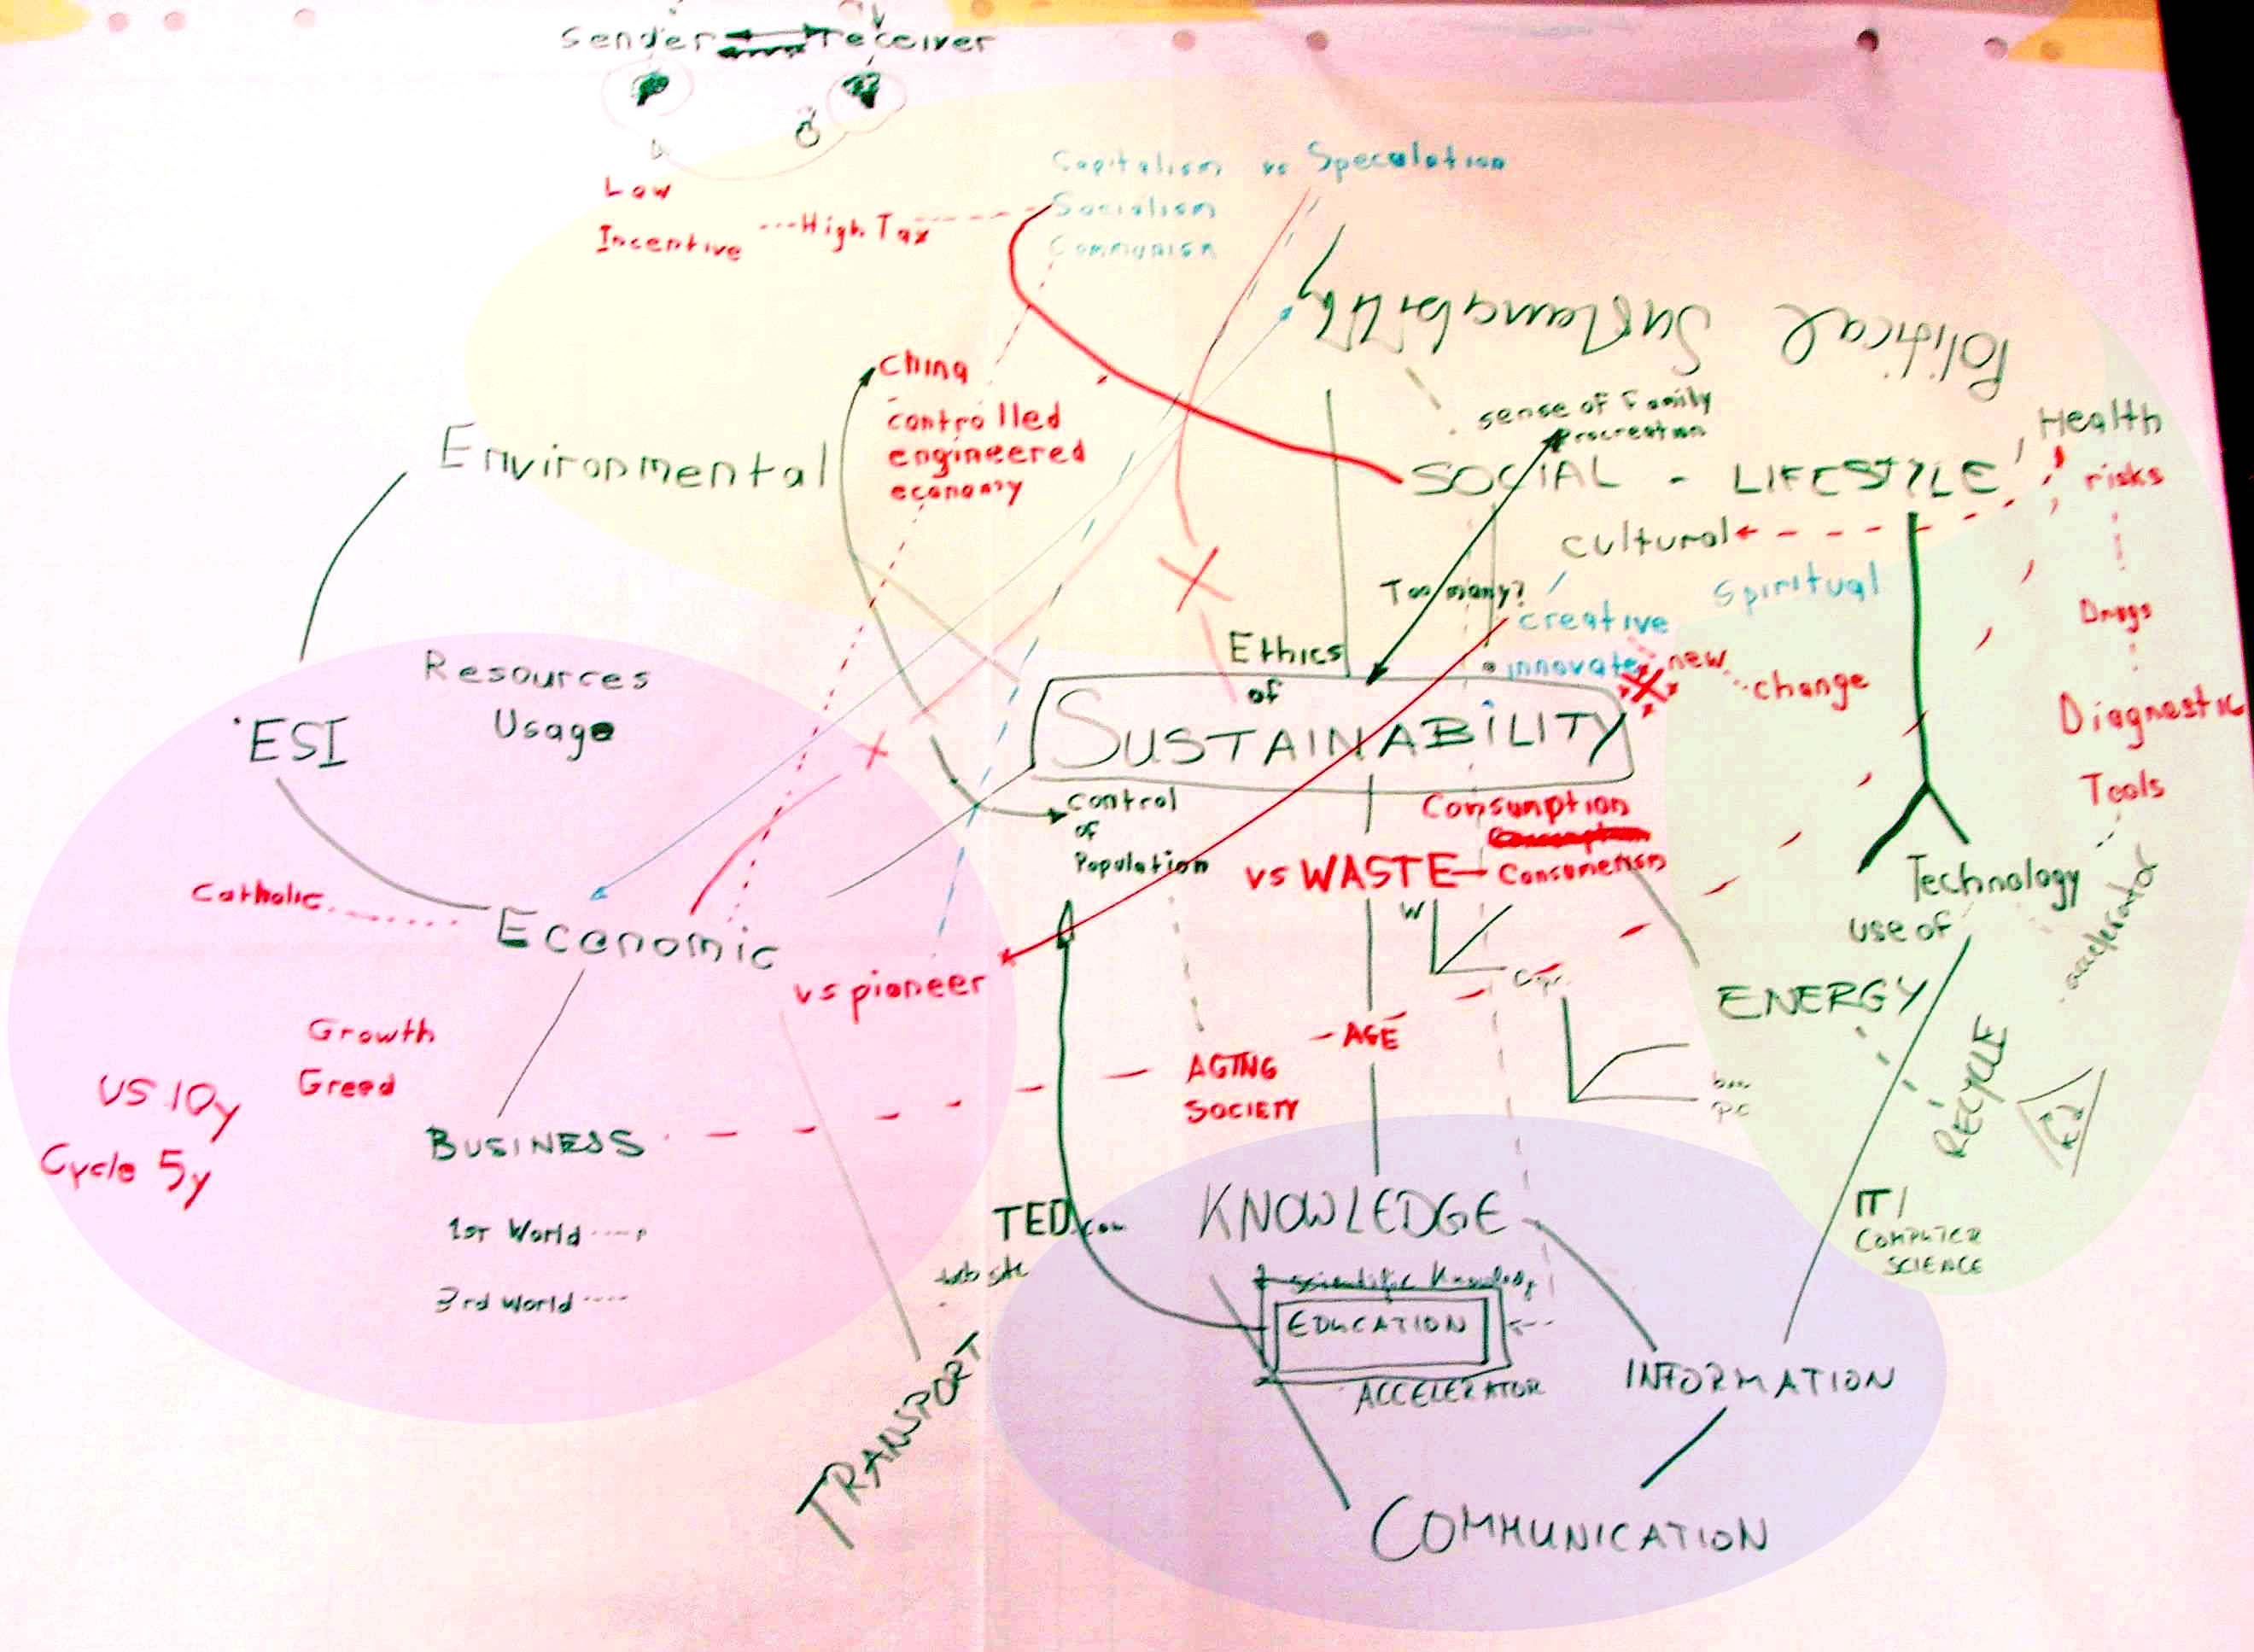 Sender receiver
Capitalism vs Speculation
Low
Incentive
High Tax
Socialism
Communism
Political Sustainability
China
controlled
engineered
economy
sense of Family
Procreation
Health
risks
Environmental
SOCIAL - LIFESTYLE
cultural
Spiritual
Too many?
creative
innovate
new
change
Drugs
Diagnostic
Tools
Ethics
of
SUSTAINABILITY
Resources
Usage
ESI
control
of
Population
Consumption
vs WASTE
Consumerism
Technology
use of
accelerator
Catholic
Economic
vs pioneer
W
ENERGY
Growth
Greed
US 10y
Cycle 5y
AGE
AGING
SOCIETY
RECYCLE
BUSINESS
1st World
3rd World
TED.com
web site
KNOWLEDGE
IT/
COMPUTER
SCIENCE
EDUCATION
ACCELERATOR
INFORMATION
TRANSPORT
COMMUNICATION